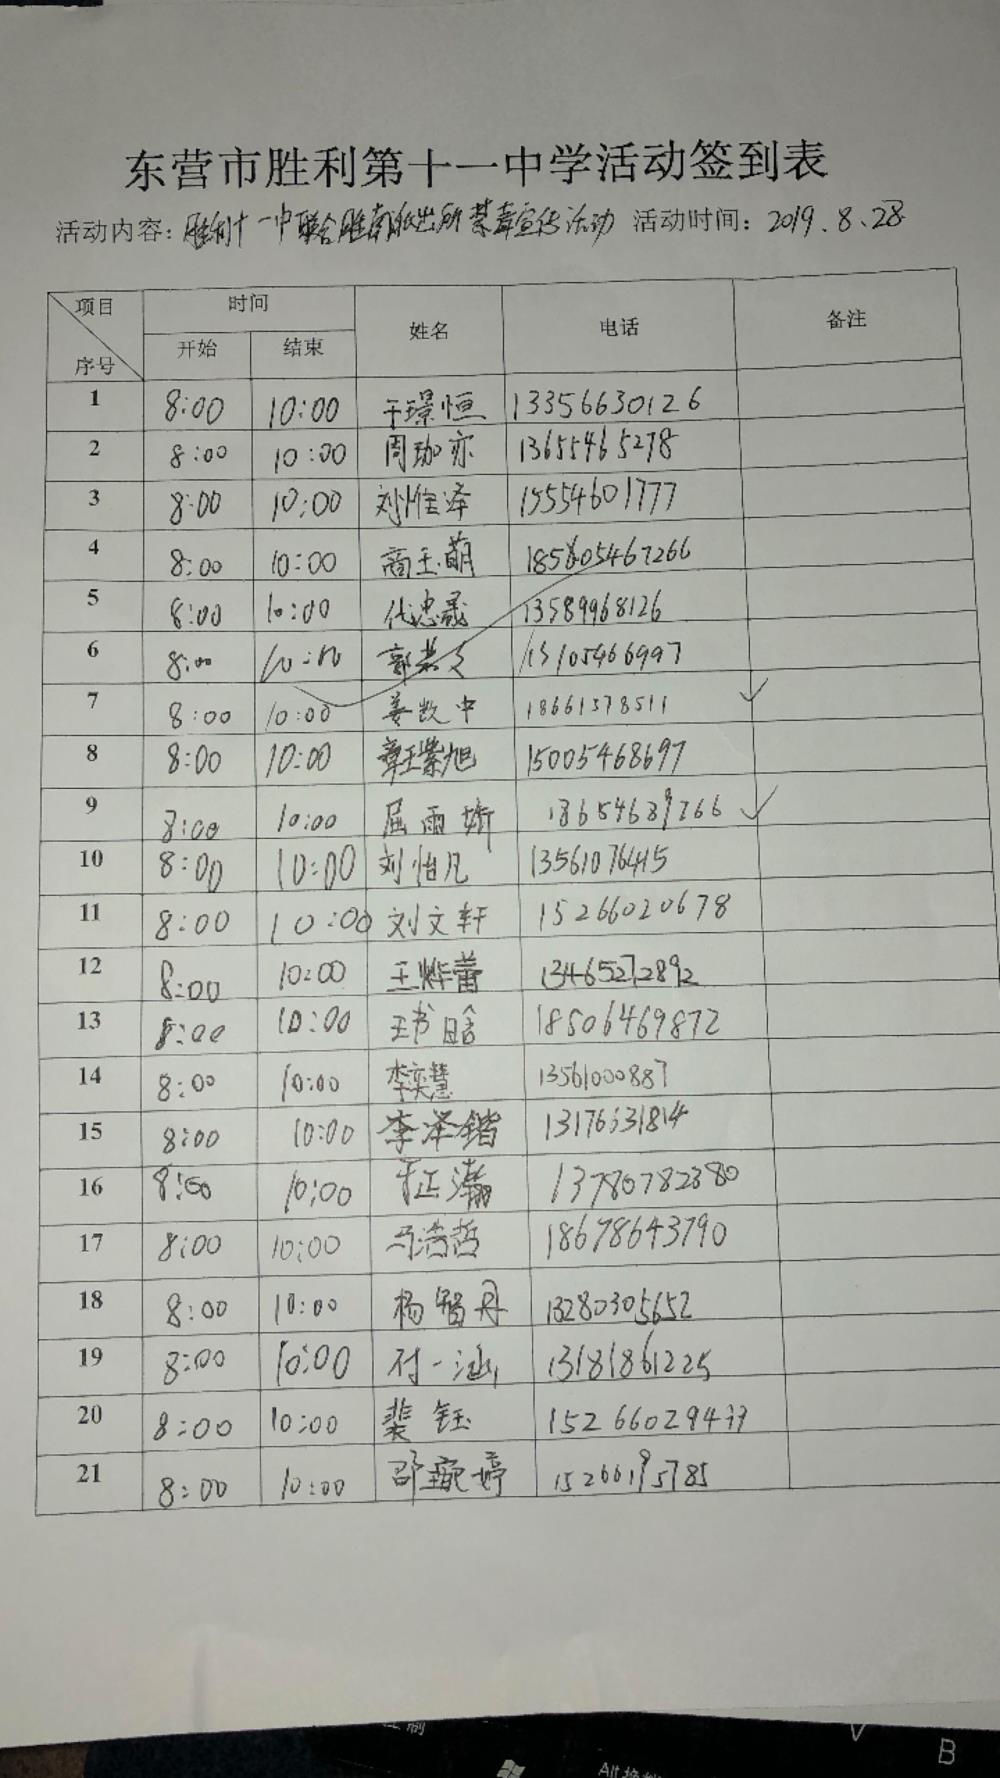 东营市胜利第十一中学活动签到表
活动内容：胜利十一中联合胜南派出所禁毒宣传活动 活动时间：2019.8.28
项目 时间 姓名 电话 备注
序号 开始 结束
1 8:00 10:00 于璟恒 13356630126
2 8:00 10:00 周珈亦 13655465278
3 8:00 10:00 刘惟泽 15554601777
4 8:00 10:00 商玉萌
5 8:00 10:00 代忠晟 13589968126
6 8:00 10:00 郭若文 13105466997
7 8:00 10:00 姜政中 18661378511 ✓
8 8:00 10:00 章王紫旭 15005468697
9 8:00 10:00 屈雨娇 ✓
10 8:00 10:00 刘怡凡 13561076415
11 8:00 10:00 刘文轩 15266020678
12 8:00 10:00 王烨蕾 13465272892
13 8:00 10:00 王书晗 18506469872
14 8:00 10:00 李奕慧 13561000887
15 8:00 10:00 李泽锴 13176631814
16 8:00 10:00 于正瀚 13780782380
17 8:00 10:00 马浩哲 18678643790
18 8:00 10:00 杨智丹 13280305652
19 8:00 10:00 付一涵 13181861225
20 8:00 10:00 裴钰 15266029477
21 8:00 10:00 邵琬婷 15266195785
Alt
V
B